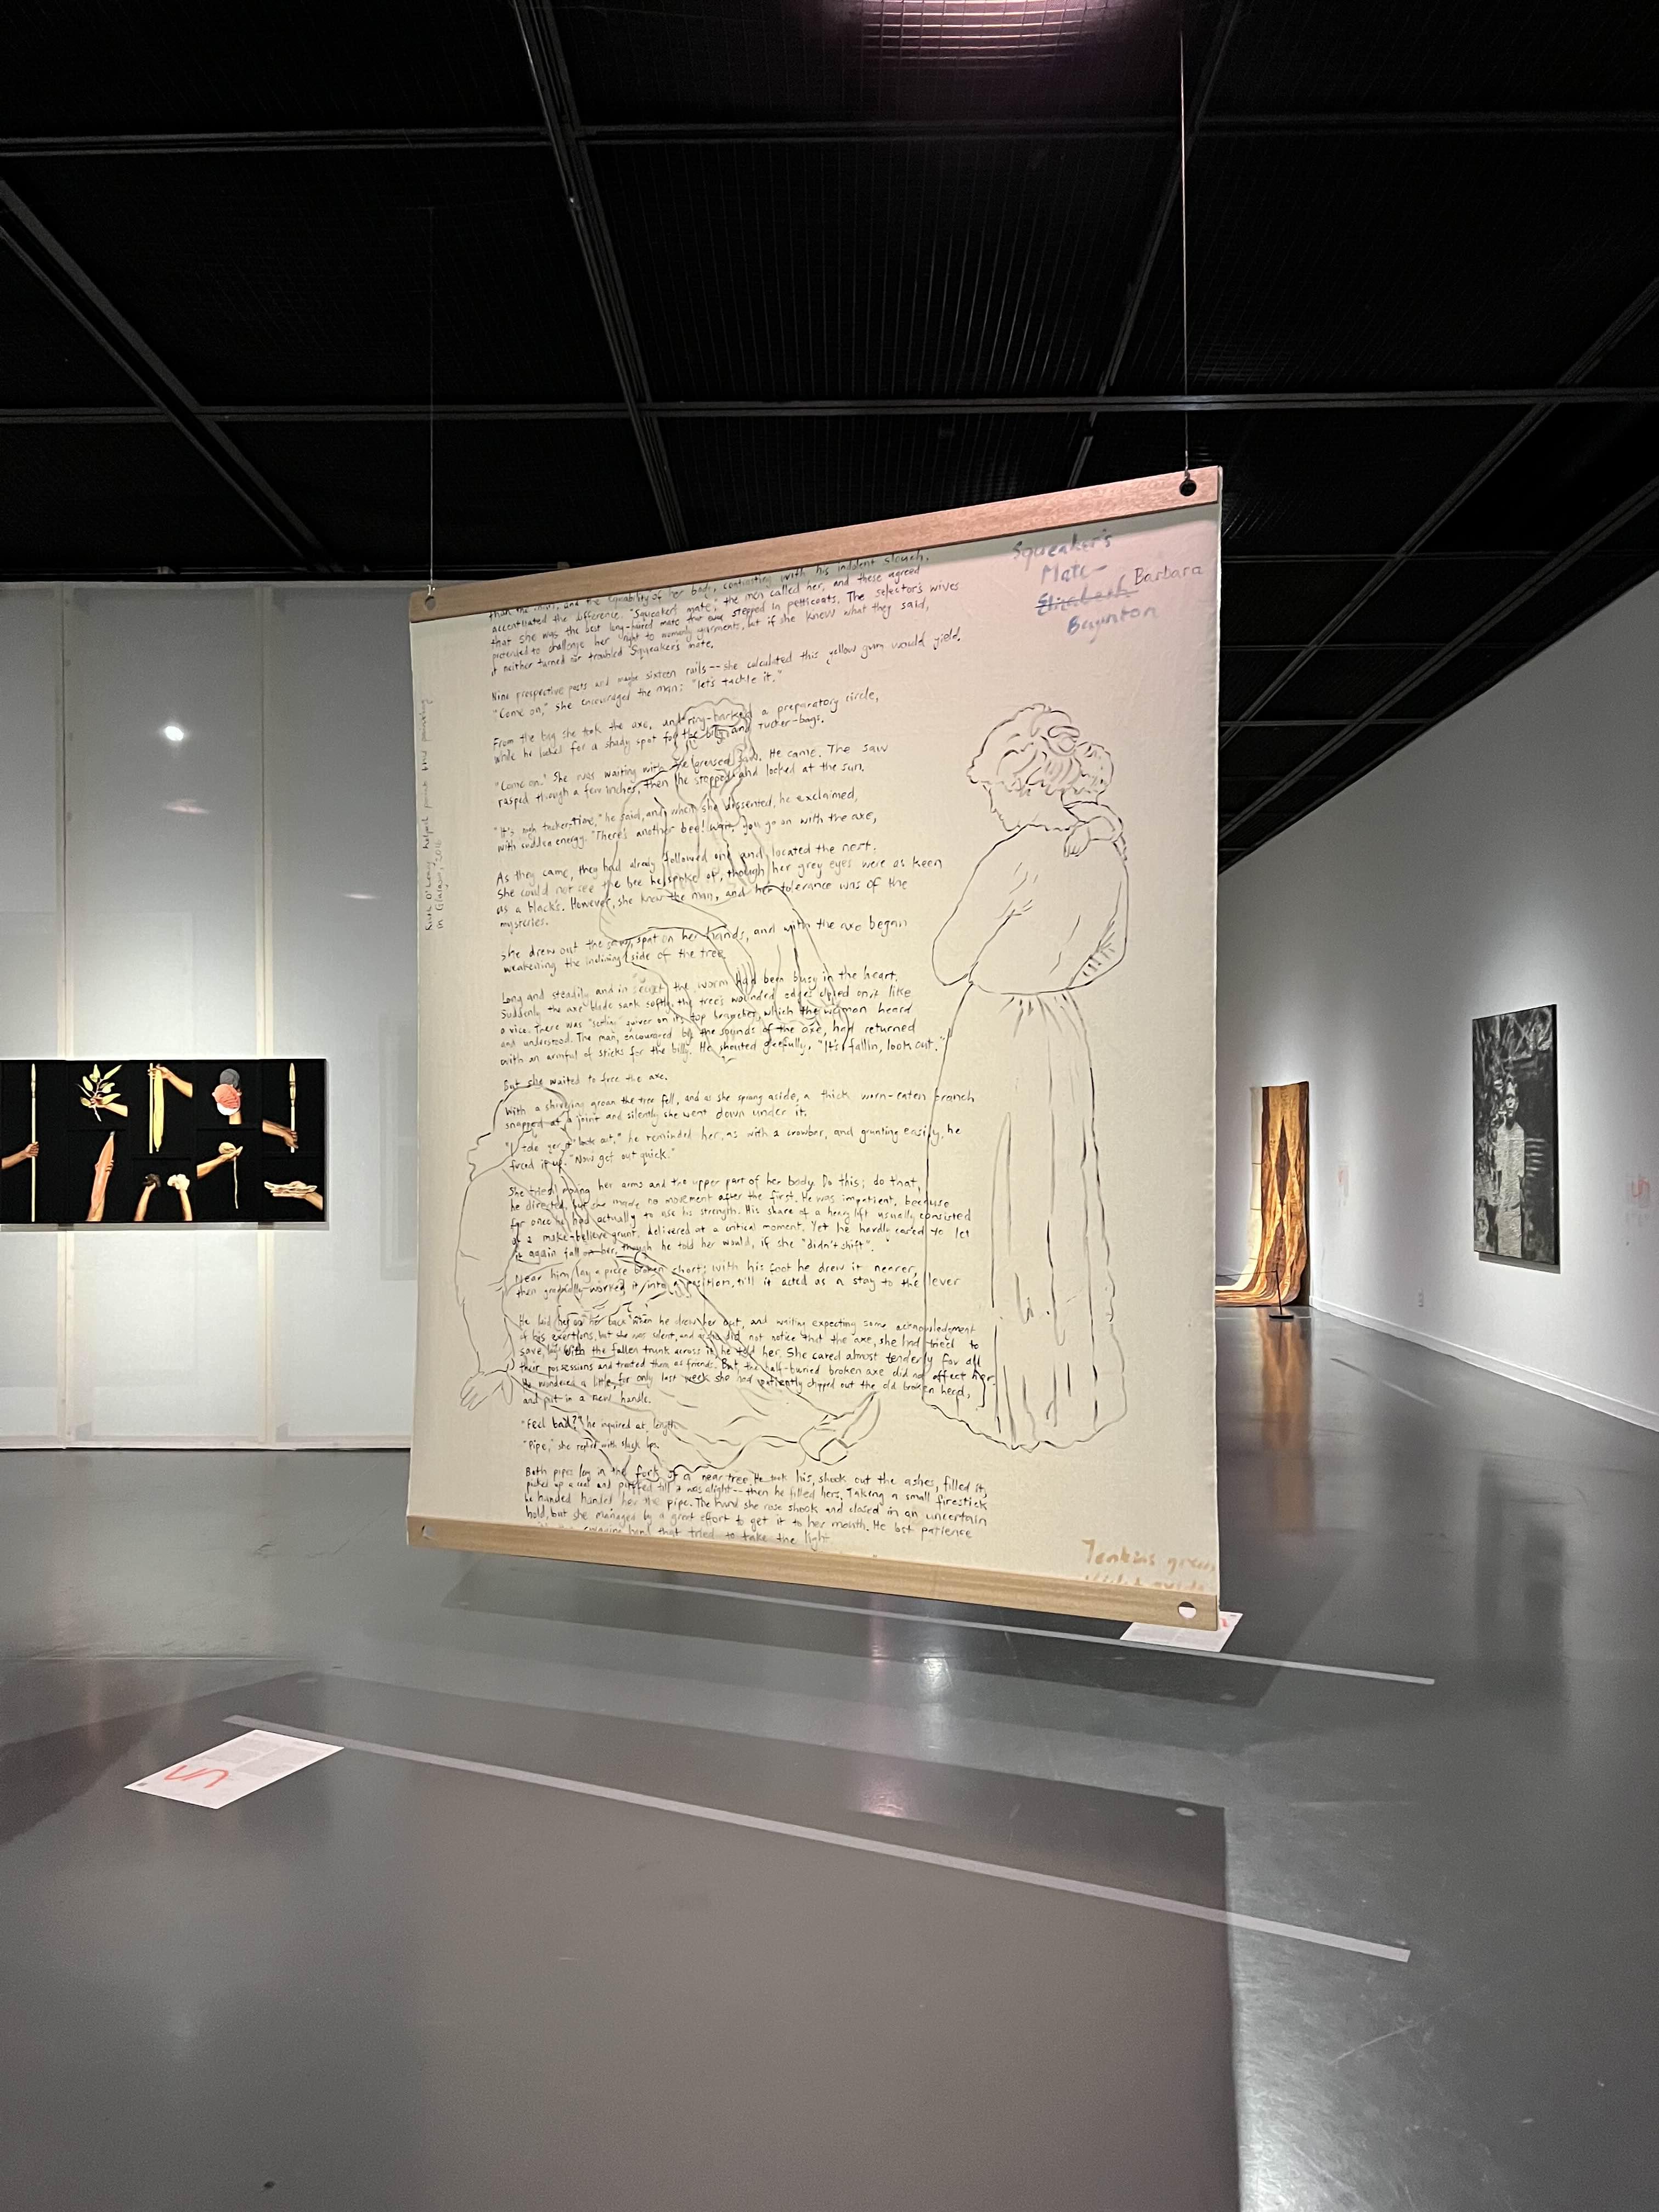 than the man's, and the equability of her body, contrasting with his indolent slouch,
accentuated the difference. "Squeaker's mate," the men called her, and these agreed
that she was the best long-haired mate that ever stepped in petticoats. The selector's wives
pretended to challenge her right to womanly garments, but if she knew what they said,
it neither turned nor troubled Squeaker's mate.
Nine prospective posts and maybe sixteen rails -- she calculated this yellow gum would yield.
"Come on," she encouraged the man; "let's tackle it."
From the bag she took the axe, and ring-barked a preparatory circle,
while he looked for a shady spot for the billy and tucker-bags.
"Come on." She was waiting with the greased saw. He came. The saw
rasped through a few inches, then he stopped and looked at the sun.
"It's nigh tucker-time," he said, and when she dissented, he exclaimed,
with sudden energy, "There's another bee! Wait, you go on with the axe,
As they came, they had already followed one and located the nest.
She could not see the bee he spoke of, though her grey eyes were as keen
as a black's. However, she knew the man, and her tolerance was of the
mysteries.
She drew out the saw, spat on her hands, and with the axe began
weakening the inclining side of the tree
Long and steadily and in secret the worm had been busy in the heart.
Suddenly the axe blade sank softly, the tree's wounded edges closed on it like
a vice. There was a "settling" quiver on its top branches, which the woman heard
and understood. The man, encouraged by the sounds of the axe, had returned
with an armful of sticks for the billy. He shouted gleefully, "It's fallin, look out."
But she waited to free the axe.
With a shivering groan the tree fell, and as she sprang aside, a thick worn-eaten branch
snapped at a joint and silently she went down under it.
"I tole yer t' look out," he reminded her, as with a crowbar, and grunting easily, he
forced it up. "Now get out quick."
She tried moving her arms and the upper part of her body. Do this; do that,
he directed, but she made no movement after the first. He was impatient, because
for once he had actually to use his strength. His share of a heavy lift usually consisted
of a make-believe grunt, delivered at a critical moment. Yet he hardly cared to let
it again fall on her, though he told her would, if she "didn't shift".
Near him lay a piece broken short; with his foot he drew it nearer,
then gradually worked it into a position, till it acted as a stay to the lever
He laid her on her back when he drew her out, and waiting expecting some acknowledgment
of his exertions, but she was silent, and as she did not notice that the axe, she had tried to
save, lay with the fallen trunk across it, he told her. She cared almost tenderly for all
their possessions and treated them as friends. But the half-buried broken axe did not affect her.
He wondered a little, for only last week she had patiently chipped out the old broken head,
and put in a new handle.
"Feel bad?" he inquired at length.
"Pipe," she replied with slack lips.
Both pipes lay in the fork of a near tree. He took his, shook out the ashes, filled it,
picked up a coal and puffed till it was alight -- then he filled hers. Taking a small firestick
he handed handed her the pipe. The hand she rose shook and closed in an uncertain
hold, but she managed by a great effort to get it to her mouth. He lost patience
swaying hand that tried to take the light
Squeaker's
Mate -
Barbara
Elizabeth
Baynton
Ruth O'Leary helped paint this painting
in Glasgow, 2016
Jenkins green